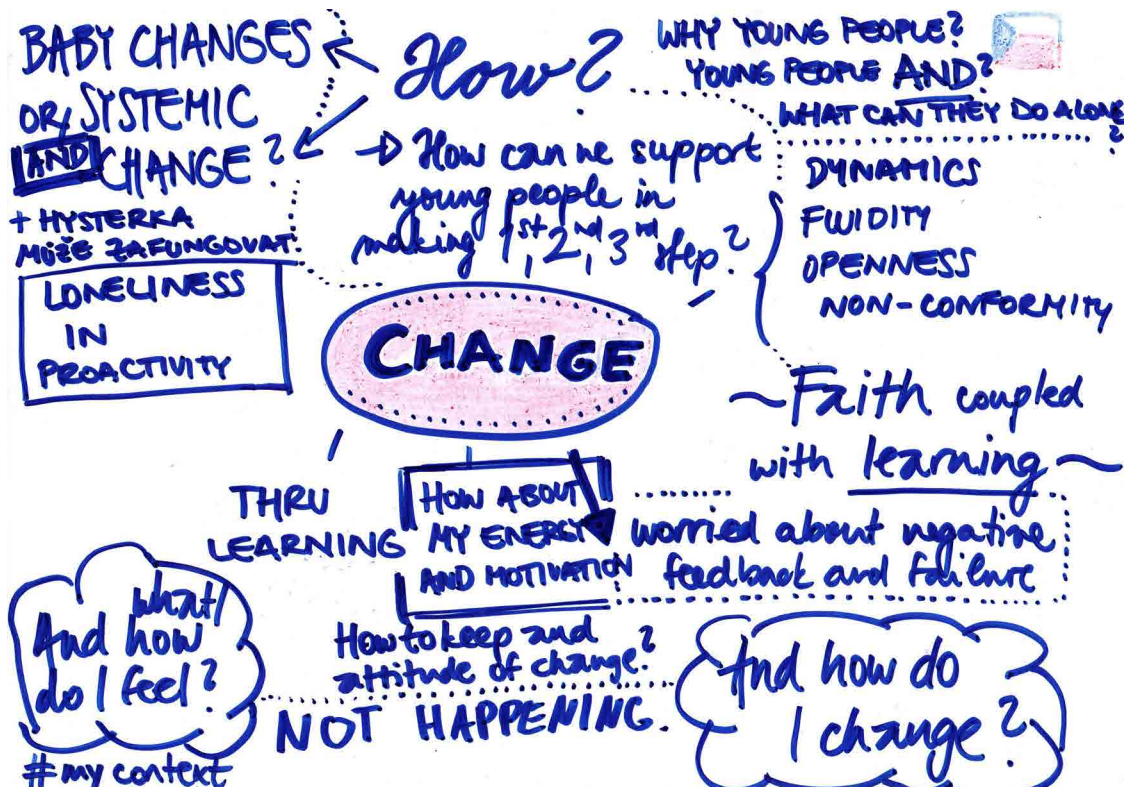 BABY CHANGES
OR/ SYSTEMIC
AND CHANGE?
+ HYSTERKA
MŮŽE ZAFUNGOVAT
LONELINESS
IN
PROACTIVITY
How?
→ How can we support
young people in
making 1st, 2nd, 3rd step?
WHY YOUNG PEOPLE?
YOUNG PEOPLE AND?
WHAT CAN THEY DO ALONE
?
DYNAMICS
FLUIDITY
OPENNESS
NON-CONFORMITY
CHANGE
~Faith coupled
with learning~
THRU
LEARNING
HOW ABOUT
MY ENERGY
AND MOTIVATION
worried about negative
feedback and failure
what/
And how
do I feel?
#my context
How to keep and
attitude of change?
NOT HAPPENING.
And how do
I change?